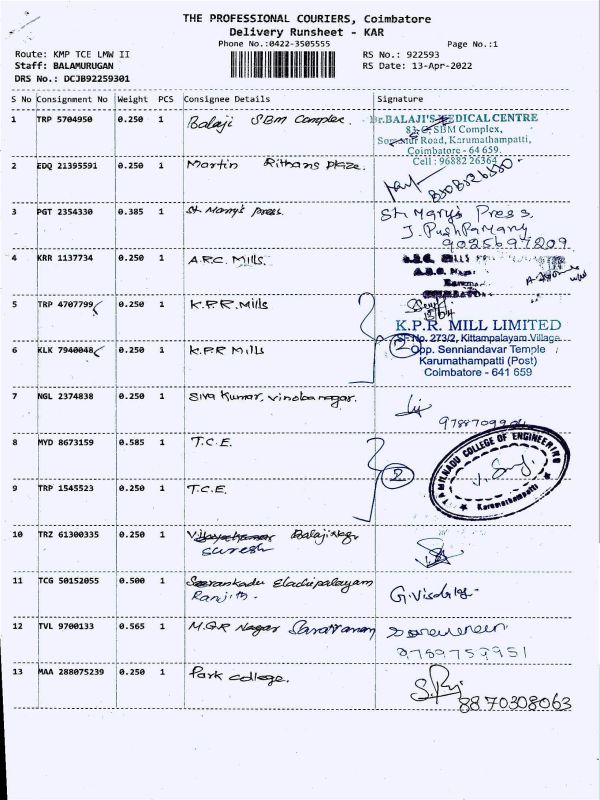 THE PROFESSIONAL COURIERS, Coimbatore
Delivery Runsheet - KAR
Phone No.:0422-3505555
Page No.:1
Route: KMP TCE LMW II
RS No.: 922593
Staff: BALAMURUGAN
RS Date: 13-Apr-2022
DRS No.: DCJB92259301
S No Consignment No Weight PCS Consignee Details Signature
1 TRP 5704950 0.250 1 Balaji SBM Complex.
Dr.BALAJI'S MEDICAL CENTRE
SBM Complex,
Road, Karumathampatti,
Coimbatore - 64 659.
Cell : 96882 26364
2 EDQ 21395591 0.250 1 Martin Rithans Plaze.
3 PGT 2354330 0.385 1 St. Marry's press.
St. Mary's Press.
J. Pushpamany
9025697209
4 KRR 1137734 0.250 1 A.R.C. Mills.
5 TRP 4707799 0.250 1 K.P.R. Mills
K.P.R. MILL LIMITED
SF No. 273/2, Kittampalayam Village
6 KLK 7940048 0.250 1 K.P.R Mills 2
Opp. Senniandavar Temple
Karumathampatti (Post)
Coimbatore - 641 659
7 NGL 2374838 0.250 1 Siva Kumar, vinobanagar.
8 MYD 8673159 0.585 1 T.C.E.
2
TAMILNADU COLLEGE OF ENGINEERING
Karumathampatti
9 TRP 1545523 0.250 1 T.C.E.
10 TRZ 61300335 0.250 1 Balaji Nagr
Suresh
11 TCG 50152055 0.500 1 Elachipalayam
Ranjith.
12 TVL 9700133 0.565 1 M.G.R Nagar Saravanan
9789759951
13 MAA 288075239 0.250 1 Park college.
8870308063